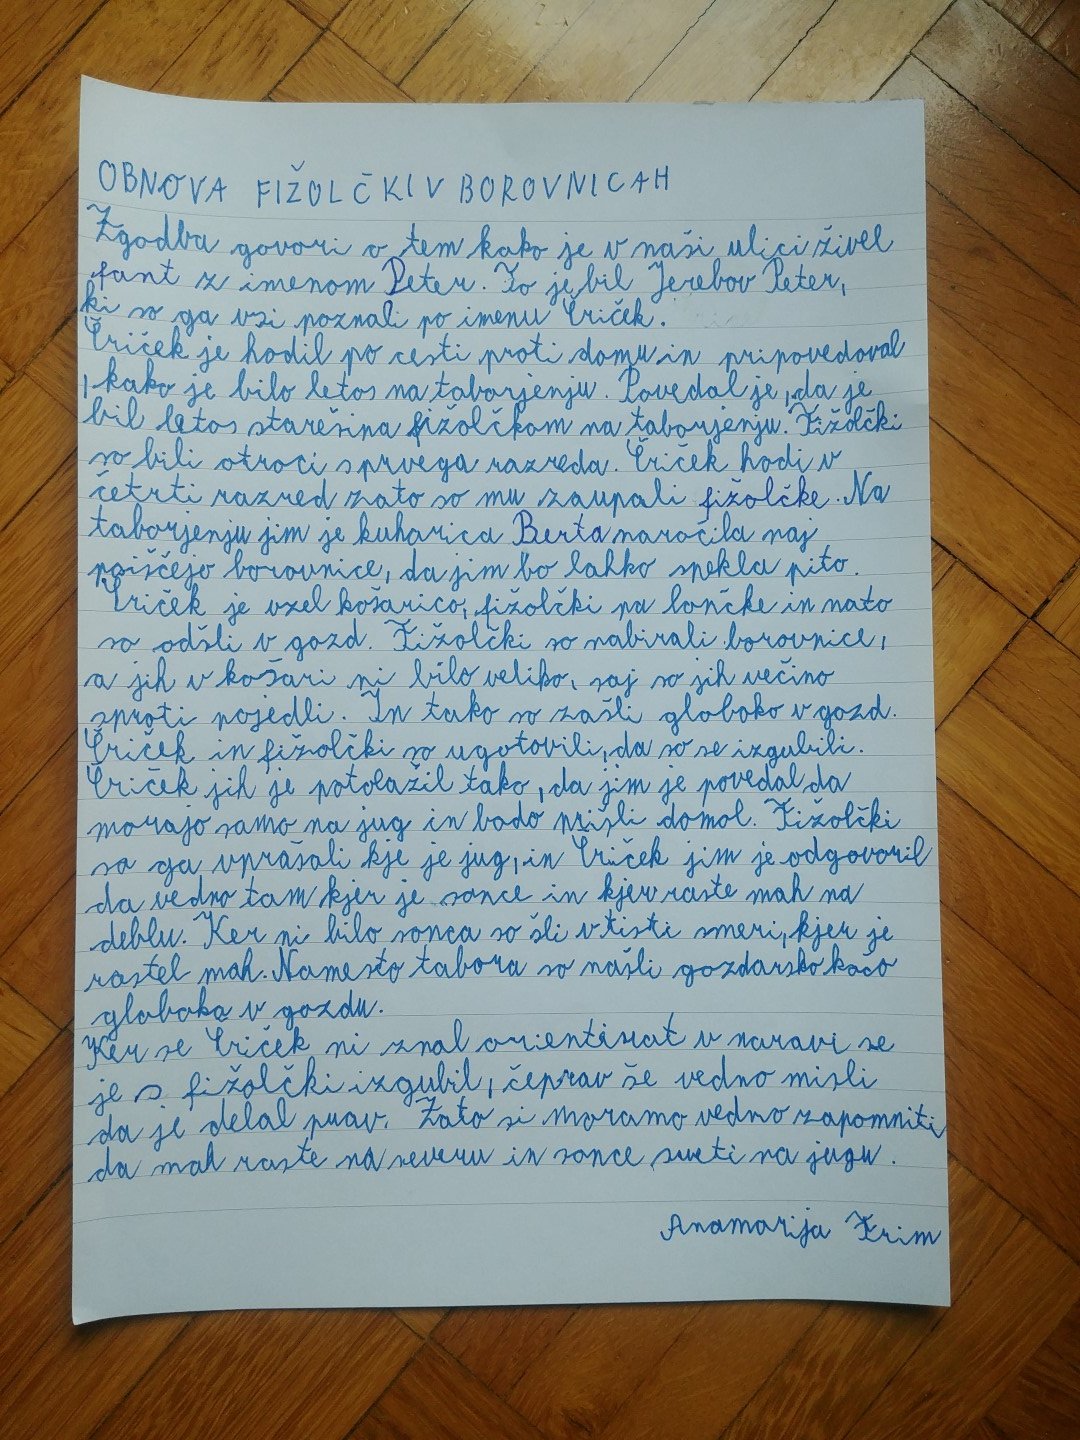 OBNOVA FIŽOLČKI V BOROVNICAH
Zgodba govori o tem kako je v naši ulici živel
fant z imenom Peter. To je bil Jerebov Peter,
ki so ga vsi poznali po imenu Čriček.
Čriček je hodil po cesti proti domu in pripovedoval
, kako je bilo letos na taborjenju. Povedal je, da je
bil letos starešina fižolčkom na taborjenju. Fižolčki
so bili otroci s prvega razreda. Čriček hodi v
četrti razred zato so mu zaupali fižolčke. Na
taborjenju jim je kuharica Berta naročila naj
poiščejo borovnice, da jim bo lahko spekla pito.
Čriček je vzel košarico, fižolčki pa lončke in nato
so odšli v gozd. Fižolčki so nabirali borovnice,
a jih v košari ni bilo veliko, saj so jih večino
sproti pojedli. In tako so zašli globoko v gozd.
Čriček in fižolčki so ugotovili, da so se izgubili.
Čriček jih je potolažil tako, da jim je povedal da
morajo samo na jug in bodo prišli domol. Fižolčki
so ga vprašali kje je jug, in Čriček jim je odgovoril
da vedno tam kjer je sonce in kjer raste mah na
deblu. Ker ni bilo sonca so šli v tisti smeri, kjer je
rastel mah. Namesto tabora so našli gozdarsko kočo
globoko v gozdu.
Ker se Čriček ni znal orientirat v naravi se
je s fižolčki izgubil, čeprav še vedno misli
da je delal prav. Zato si moramo vedno zapomniti
da mah raste na severu in sonce sveti na jugu.
Anamarija Krim